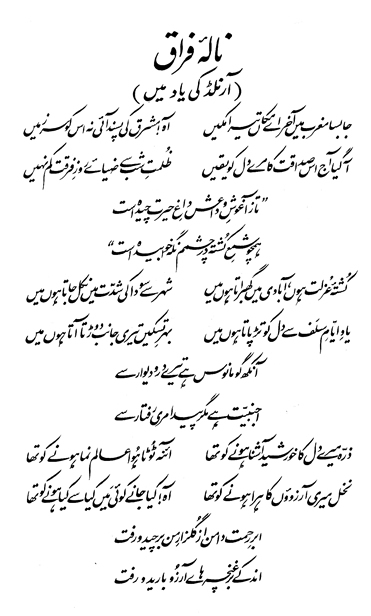 نالۂ فراق
(آرنلڈ کی یاد میں)
جا بسا مغرب میں آخر اے مکاں تیرا مکیں آہ! مشرق کی پسند آئی نہ اس کو سرزمیں
آگیا آج اس صداقت کا مرے دل کو یقیں ظلمتِ شب سے ضیائے روزِ فرقت کم نہیں
"تا ز آغوشِ وداعش داغِ حیرت چیدہ است
ہمچو شمعِ کشتہ در چشمم نگہ خوابیدہ است"
کشتۂ عزلت ہوں، آبادی میں گھبراتا ہوں میں شہر سے سودا کی شدت میں نکل جاتا ہوں میں
یادِ ایامِ سلف سے دل کو تڑپاتا ہوں میں بہرِ تسکیں تیری جانب دوڑتا آتا ہوں میں
آنکھ گو مانوس ہے تیرے در و دیوار سے
اجنبیت ہے مگر پیدا مری رفتار سے
ذرہ میرے دل کا خورشید آشنا ہونے کو تھا آئنہ ٹوٹا ہوا عالم نما ہونے کو تھا
نخل میری آرزوؤں کا ہرا ہونے کو تھا آہ! کیا جانے کوئی میں کیا سے کیا ہونے کو تھا
ابرِ رحمت دامن از گلزارِ من برچید و رفت
اندکے بر غنچہ ہائے آرزو بارید و رفت